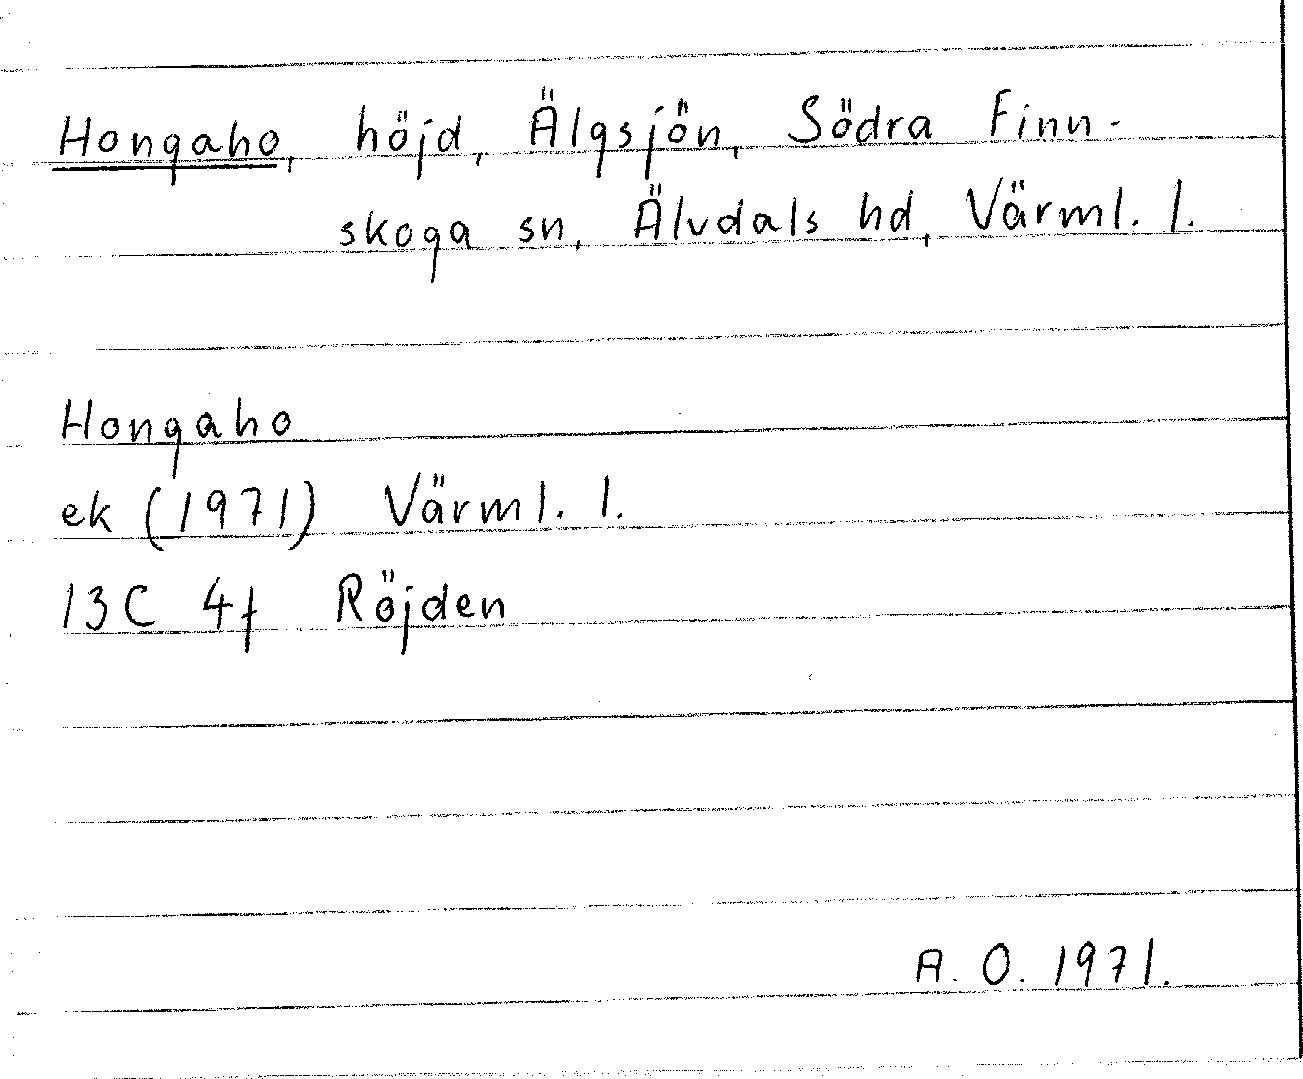 Hongaho, höjd, Älgsjön, Södra Finn-
skoga sn, Älvdals hd, Värml. l.
Hongaho
ek (1971) Värml. l.
13C 4f Röjden
A. O. 1971.